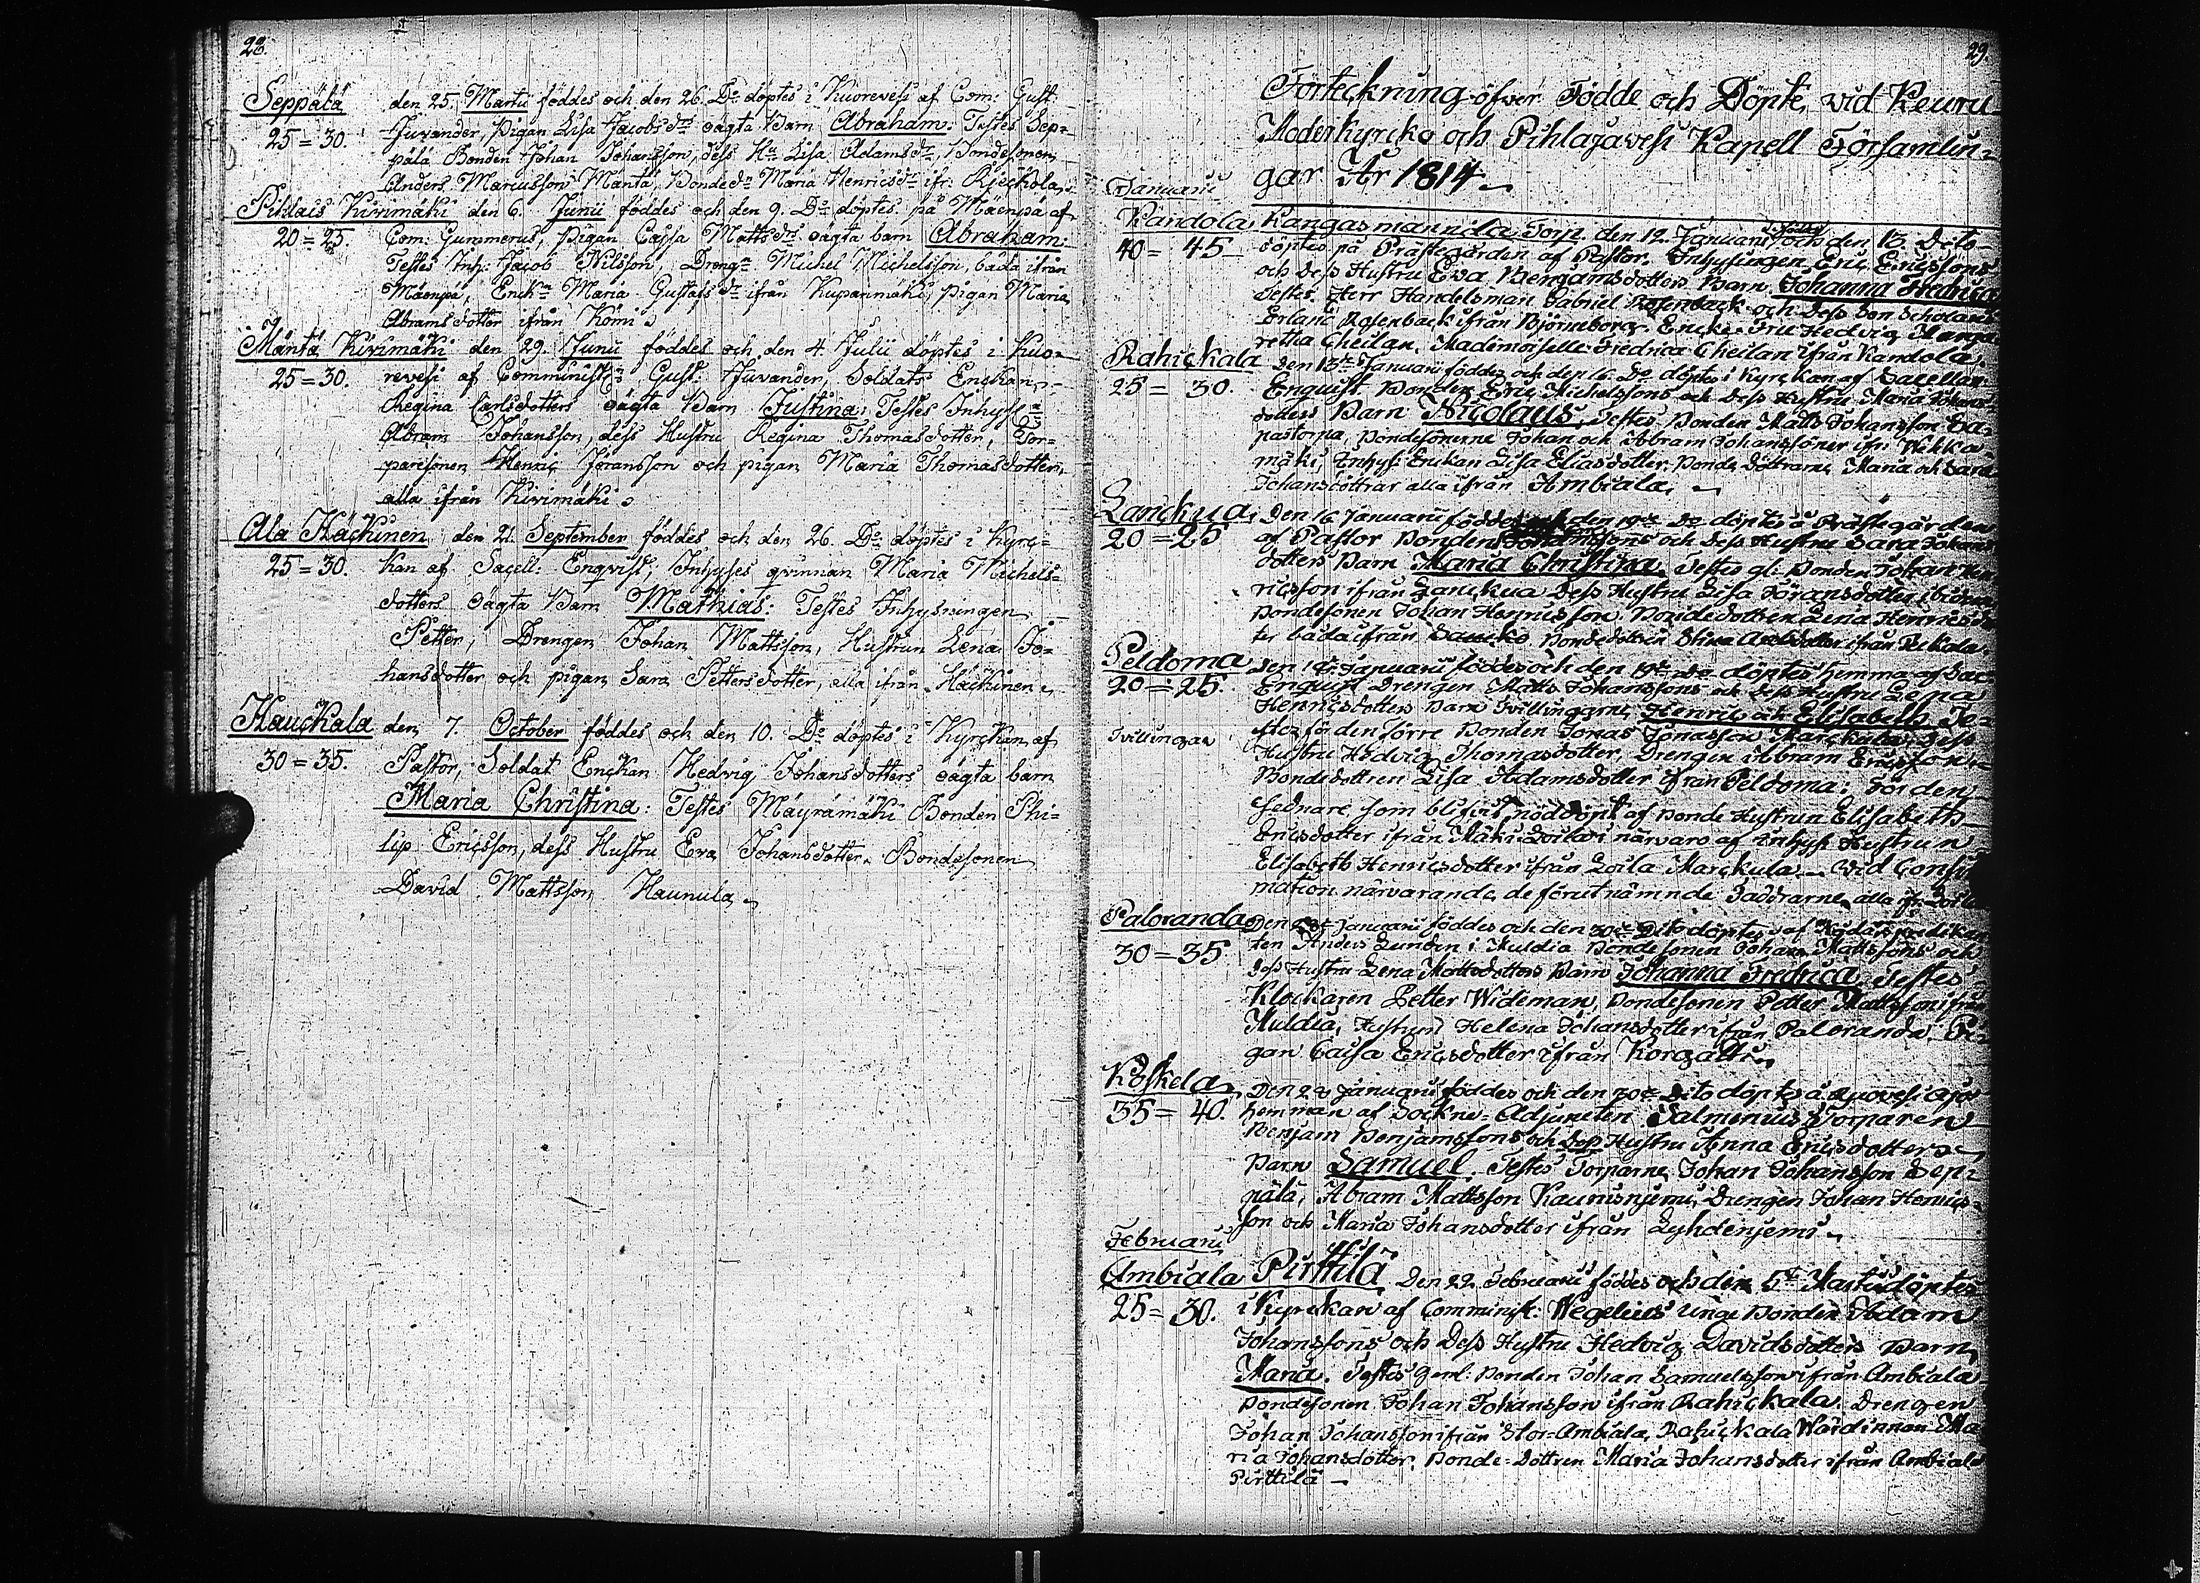 28.
Seppälä den 25. Martii föddes och den 26. Do döptes i Kuorevesi af Com: Gust:
25=30. Juvander, Pigan Lisa Jacobsdrs oägta Barn Abraham: Testes Sep-
pälä Bonden Johan Johansson, dess Hu Lisa Adamsdr, Bondesonen
Anders Marcusson Mäntä, Bondedn Maria Henricsdr ifr:
Pihlais Kivimäki den 6. Junii föddes och den 9. Do döptes på Mäenpä af
20=25. Com: Gummerus, Pigan Cajsa Mattsdrs oägta barn Abraham:
Testes Inh: Jacob Nilsson, Drengn Michel Michelsson, båda ifrån
Mäenpä, Enckn Maria Gustafsdr ifrån Kupanmäki, pigan Maria
Abramsdotter ifrån Kömi
Mäntä Kivimäki den 29. Junii föddes och den 4. Julii döptes i Kuo-
25=30. revesi af Gust: Juvander, Soldats Enckan
Regina Carlsdotters oägta Barn Justina: Testes
Abram Johansson, dess Hustru Regina Thomasdotter, Tor-
paresonen Henric Joransson och pigan Maria Thomasdotter,
alla ifrån Kivimäki
Ala Häckinen den 21. September föddes och den 26. Do döptes i Kyrc-
25=30. kan af Sacell: Enqvist, Inhyses qvinnan Maria Michels-
dotters oägta Barn Mathias: Testes Inhysningen
Petter, Drengen Johan Mattsson, Hustrun Lena Jo-
hansdotter och pigan Sara Pettersdotter, alla ifrån Häckinen
Hauckala den 7. October föddes och den 10. Do döptes i Kyrckan af
30=35. Pastor, Soldat Enckan Hedvig Johansdotters oägta barn
Maria Christina: Testes Mäyrämäki Bonden Phi-
lip Ericsson, dess Hustru Eva Johansdotter. Bondesonen
David Mattsson Haunula
29.
Förteckning öfver Födde och Döpte, vid Keuru
Moderkyrcko och Pihlajavesi Kapell Församlin-
gar År 1814
Januarii
Kandola, Kangasmannila Torp den 12. Januarii föddes och den 13. Dito
40=45 döptes på Prästegården af Pastor. Inhysingen Eric Ericssons
och dess Hustru Eva Benjamsdotters Barn Johanna Fredrica
Testes Herr Handelsman Gabriel Rosenback och Dess Son
Erland Rosenback ifrån Björneborg. Encke Fru Hedvig Marga
retha Cheilan. Mademoiselle Fredrica Cheilan ifrån Kandola.
Rahickala den 13de Januarii föddes och den 16. Do döptes i Kyrckan af Sacellan:
25=30. Enquist Bonden Eric Michelssons och dess Hustru Maria Johans
dotters Barn Nicolaus, Testes Bonden Matts Johansson
Bondesönerne Johan och Abram Johanssöner ifr:
mäki, Inhys: Enckan Lisa Eliasdotter, Bonde döttrarne Maria och Sara
Johansdöttrar alla ifrån Ambiala.
Lanckua, Den 16 Januarii föddes och den 19de Do döptes å Prästegården
20=25 af Pastor Bonden och dess Hustru Sara Johans
dotters Barn Maria Christina, Testes gl. Bonden Johan Hen
ricsson ifrån Lanckua Dess Hustru Lisa Jöransdotter ibidem
Bondesonen Johan Henricsson Bondedottren Lena Henricsdot
ter båda ifrån Bondedottren Stina ifrån
Peldoma Januarii föddes och den 19de Do döptes hemma af Sac
20=25. Enquist Drengen Matts Johanssons och dess Hustru Lena
Henricsdotters Barn Tvillingarne, Henric och Elisabeth Te-
Tvillingar stes för den förre Bonden Jonas Jonasson dess
Hustru Hedvig Thomasdotter, Drengen Abram Ericsson
Bondedottren Lisa Adamsdotter ifrån Peldoma: För den
sednare som blifvit nöddöpt af Bonde Hustrun Elisabeth
Ericsdotter ifrån Mäki närvaro af Inhys: Hustrun
Elisabeth Henricsdotter ifrån Loila Marckula. Vid Confir
mation närvarande de förutnämnde Faddrarne alla
Paloranda Den Januarii föddes och den 30de Dito döptes af
30=35 ten Anders Lunden i Muldia Bondesonen Johan Mattssons och
dess Hustru Lena Mattsdotters Barn Johanna Fredrica Testes
Klockaren Petter Wideman, Bondesonen Petter Mattsson ifrån
Muldia, Hustrun Helena Johansdotter ifrån Paloranda. Pi-
gan Caisa Ericsdotter ifrån
Koskela Den 28 Januarii föddes och den 30de Dito döptes å
35=40. hemman af Sockne-Adjuncten Salmenius Torparen
Benjam Benjamssons och dess Hustru Anna Ericsdotters
Barn Samuel. Testes Torparne Johan Johansson Sep-
pälä, Abram Mattsson Kaunisnjemi, Drengen Johan Henrics-
son och Maria Johansdotter ifrån Lyhdenjemi
Februarii
Ambiala Pirttilä Den 22 Februarii föddes och den 5te Martii döptes
25=30. i Kyrckan af Comminist: Wegelius unga Bonden Adam
Johanssons och Dess Hustru Hedvig Davidsdotters Barn
Maria. Testes Geml: Bonden Johan Samuelsson ifrån Ambiala
Bondesonen Johan Johansson ifrån Rahickala, Drengen
Johan Johansson ifrån Stor=Ambiala, Rahickala Wärdinnan Ma
ria Johansdotter. Bonde=Dottren Maria Johansdotter ifrån Ambiala
Pirttilä